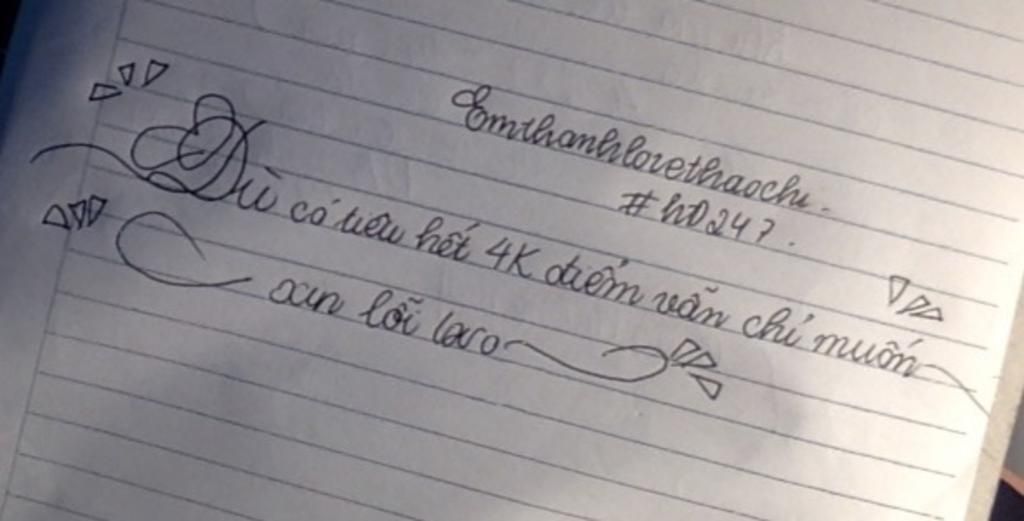 Emthanhlovethaochi.
#hD247.
Dù có tiêu hết 4K điểm vẫn chỉ muốn
xin lỗi